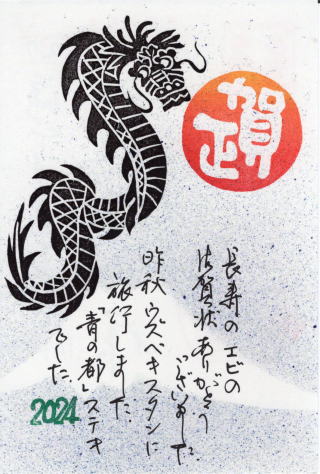 賀正
長寿のエビの
御賀状ありがとう
ございました
昨秋ウズベキスタンに
旅行しました
「青の都」ステキ
でした.
2024